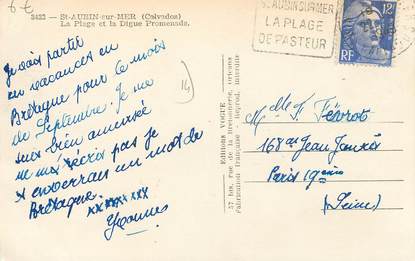 6€
3433 - St-AUBIN-sur-MER (Calvados)
La Plage et la Digue Promenade.
Je suis partie
en vacances en
Bretagne pour le mois
de Septembre. Je me
suis bien amusée
ne m'écris pas je
t'enverrai un mot de
Bretagne.
xx xxxx xxx
Yvonne
14
Editions VOGUE
57 bis, rue de la Bretonnerie,
Fabrication française
St AUBIN SUR MER
LA PLAGE
DE PASTEUR
12F
RF
Melle F. Févrot
168 av Jean Jaurès
Paris 19ème
(Seine)